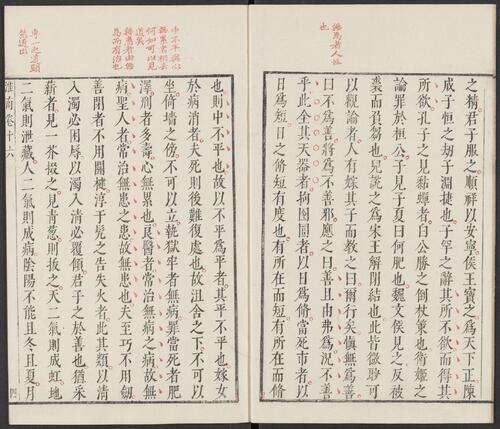 之精君子服之順祥以安寧侯王寶之為天下正陳
成子恒之劫子淵捷也子罕之辭其所不欲而得其
所欲孔子之見黏蟬者白公勝之倒杖策也衛姬之
論罪於桓公子見子夏曰何肥也魏文侯見之反被
裘而負芻也兒說之為宋王解閉結也此皆微眇可
以觀論者人有嫁其子而教之曰爾行矣慎無為善
曰不為善將為不善邪應之曰善且由弗為況不善
乎此全其天器者拘囹圄者以日為脩當死市者以
日為短日之脩短有度也有所在而短有所在而脩
中不平與心
無累者相去
何如可以見
道矣
也則中不平也故以不平為平者其平不平也嫁女
於病消者夫死則後難復處也故沮舍之下不可以
坐倚墻之傍不可以立執獄牢者無病罪當死者肥
澤刑者多壽心無累也良醫者常治無病之病故無
病聖人者常治無患之患故無患也夫至巧不用劒
善閉者不用關楗淳于髡之告失火者此其類以清
入濁必困辱以濁入清必覆傾君子之於善也猶采
薪者見一芥掇之見青葱則拔之天二氣則成虹地
二氣則泄藏人二氣則成病陰陽不能且冬且夏月
淮南卷十六 四